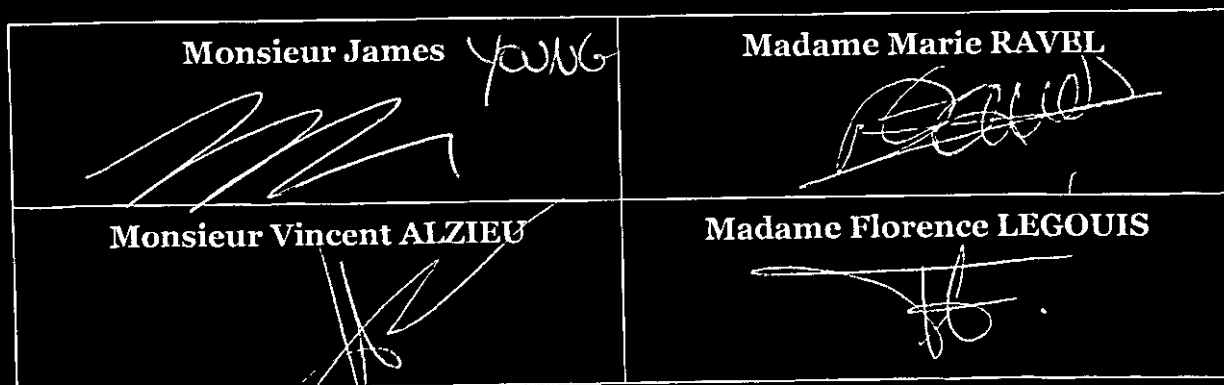 Monsieur James YOUNG
Madame Marie RAVEL
Monsieur Vincent ALZIEU
Madame Florence LEGOUIS